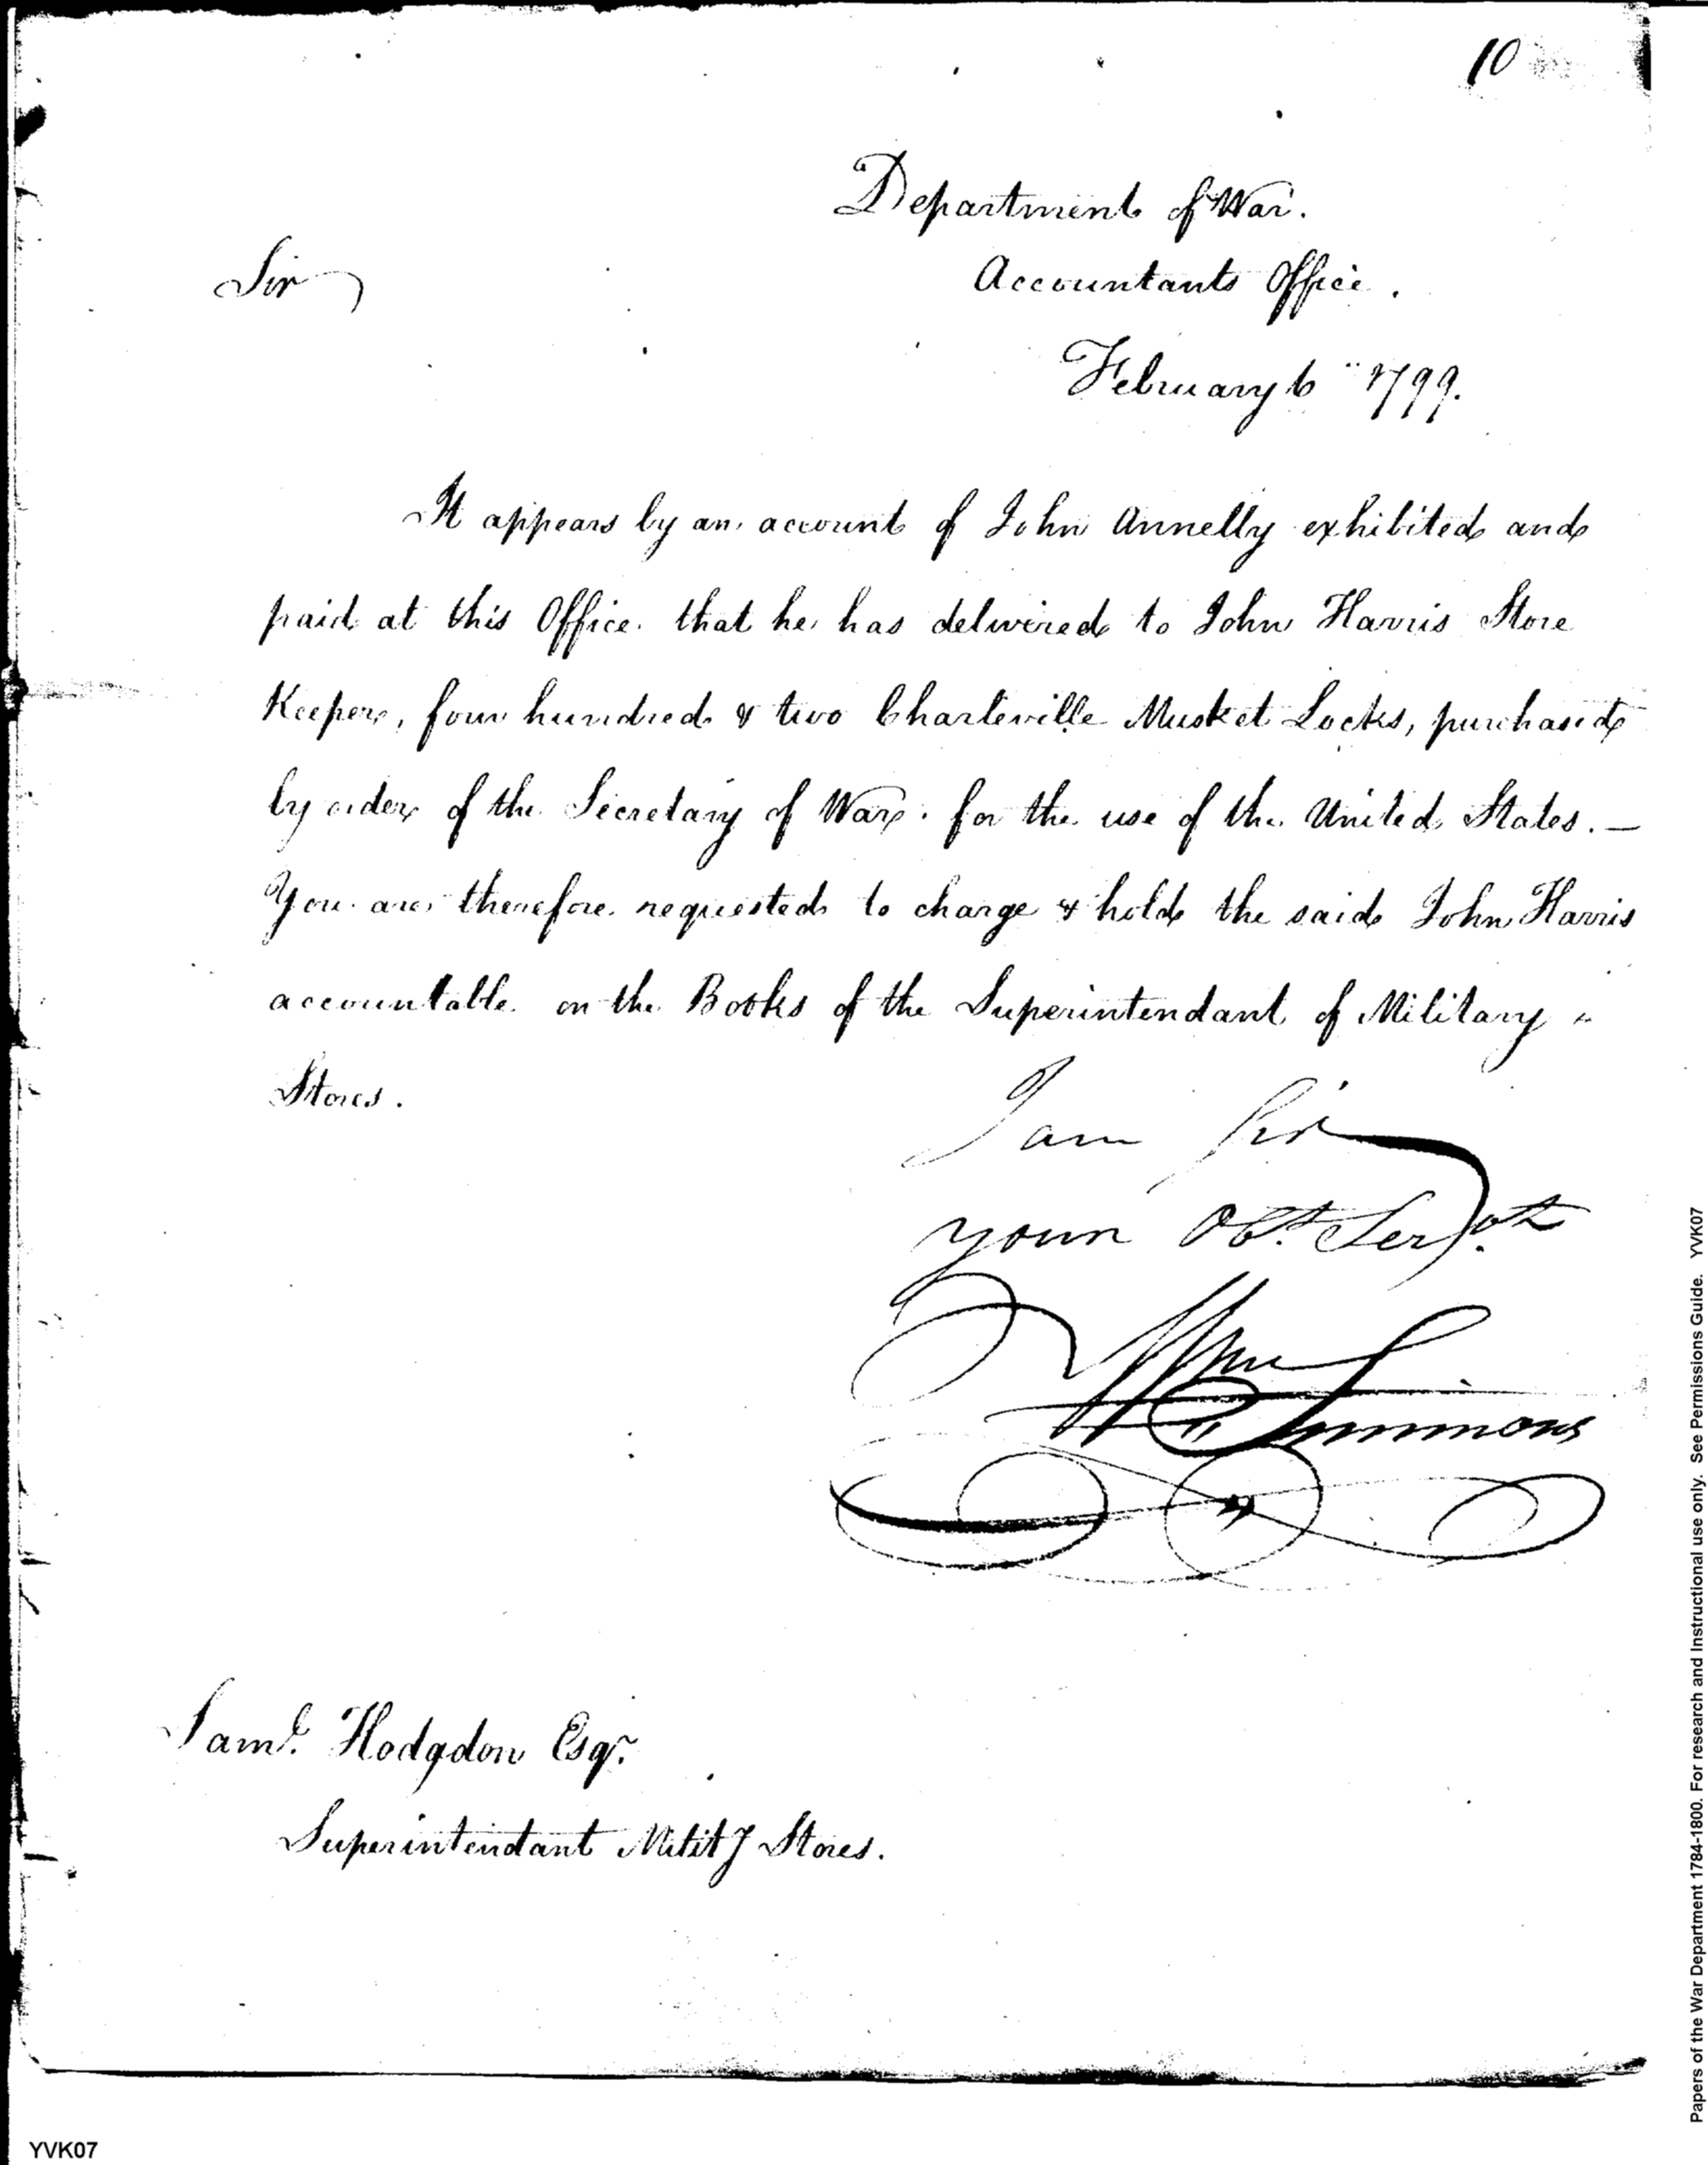 10
Department of War.
Sir
Accountants Office.
February 6" 1799.
It appears by an account of John Annelly exhibited and
paid at this Office that he has delivered to John Harris Store
Keeper, four hundred & two Charleville Musket Locks, purchased
by order of the Secretary of War. for the use of the United States. —
You are therefore requested to charge & hold the said John Harris
accountable on the Books of the Superintendant of Military
Stores.
I am Sir
your Obt. Servt.
Wm Simmons
Saml. Hodgdon Esqr.
Superintendant Mility Stores.
Papers of the War Department 1784-1800. For research and Instructional use only. See Permissions Guide. YVK07
YVK07